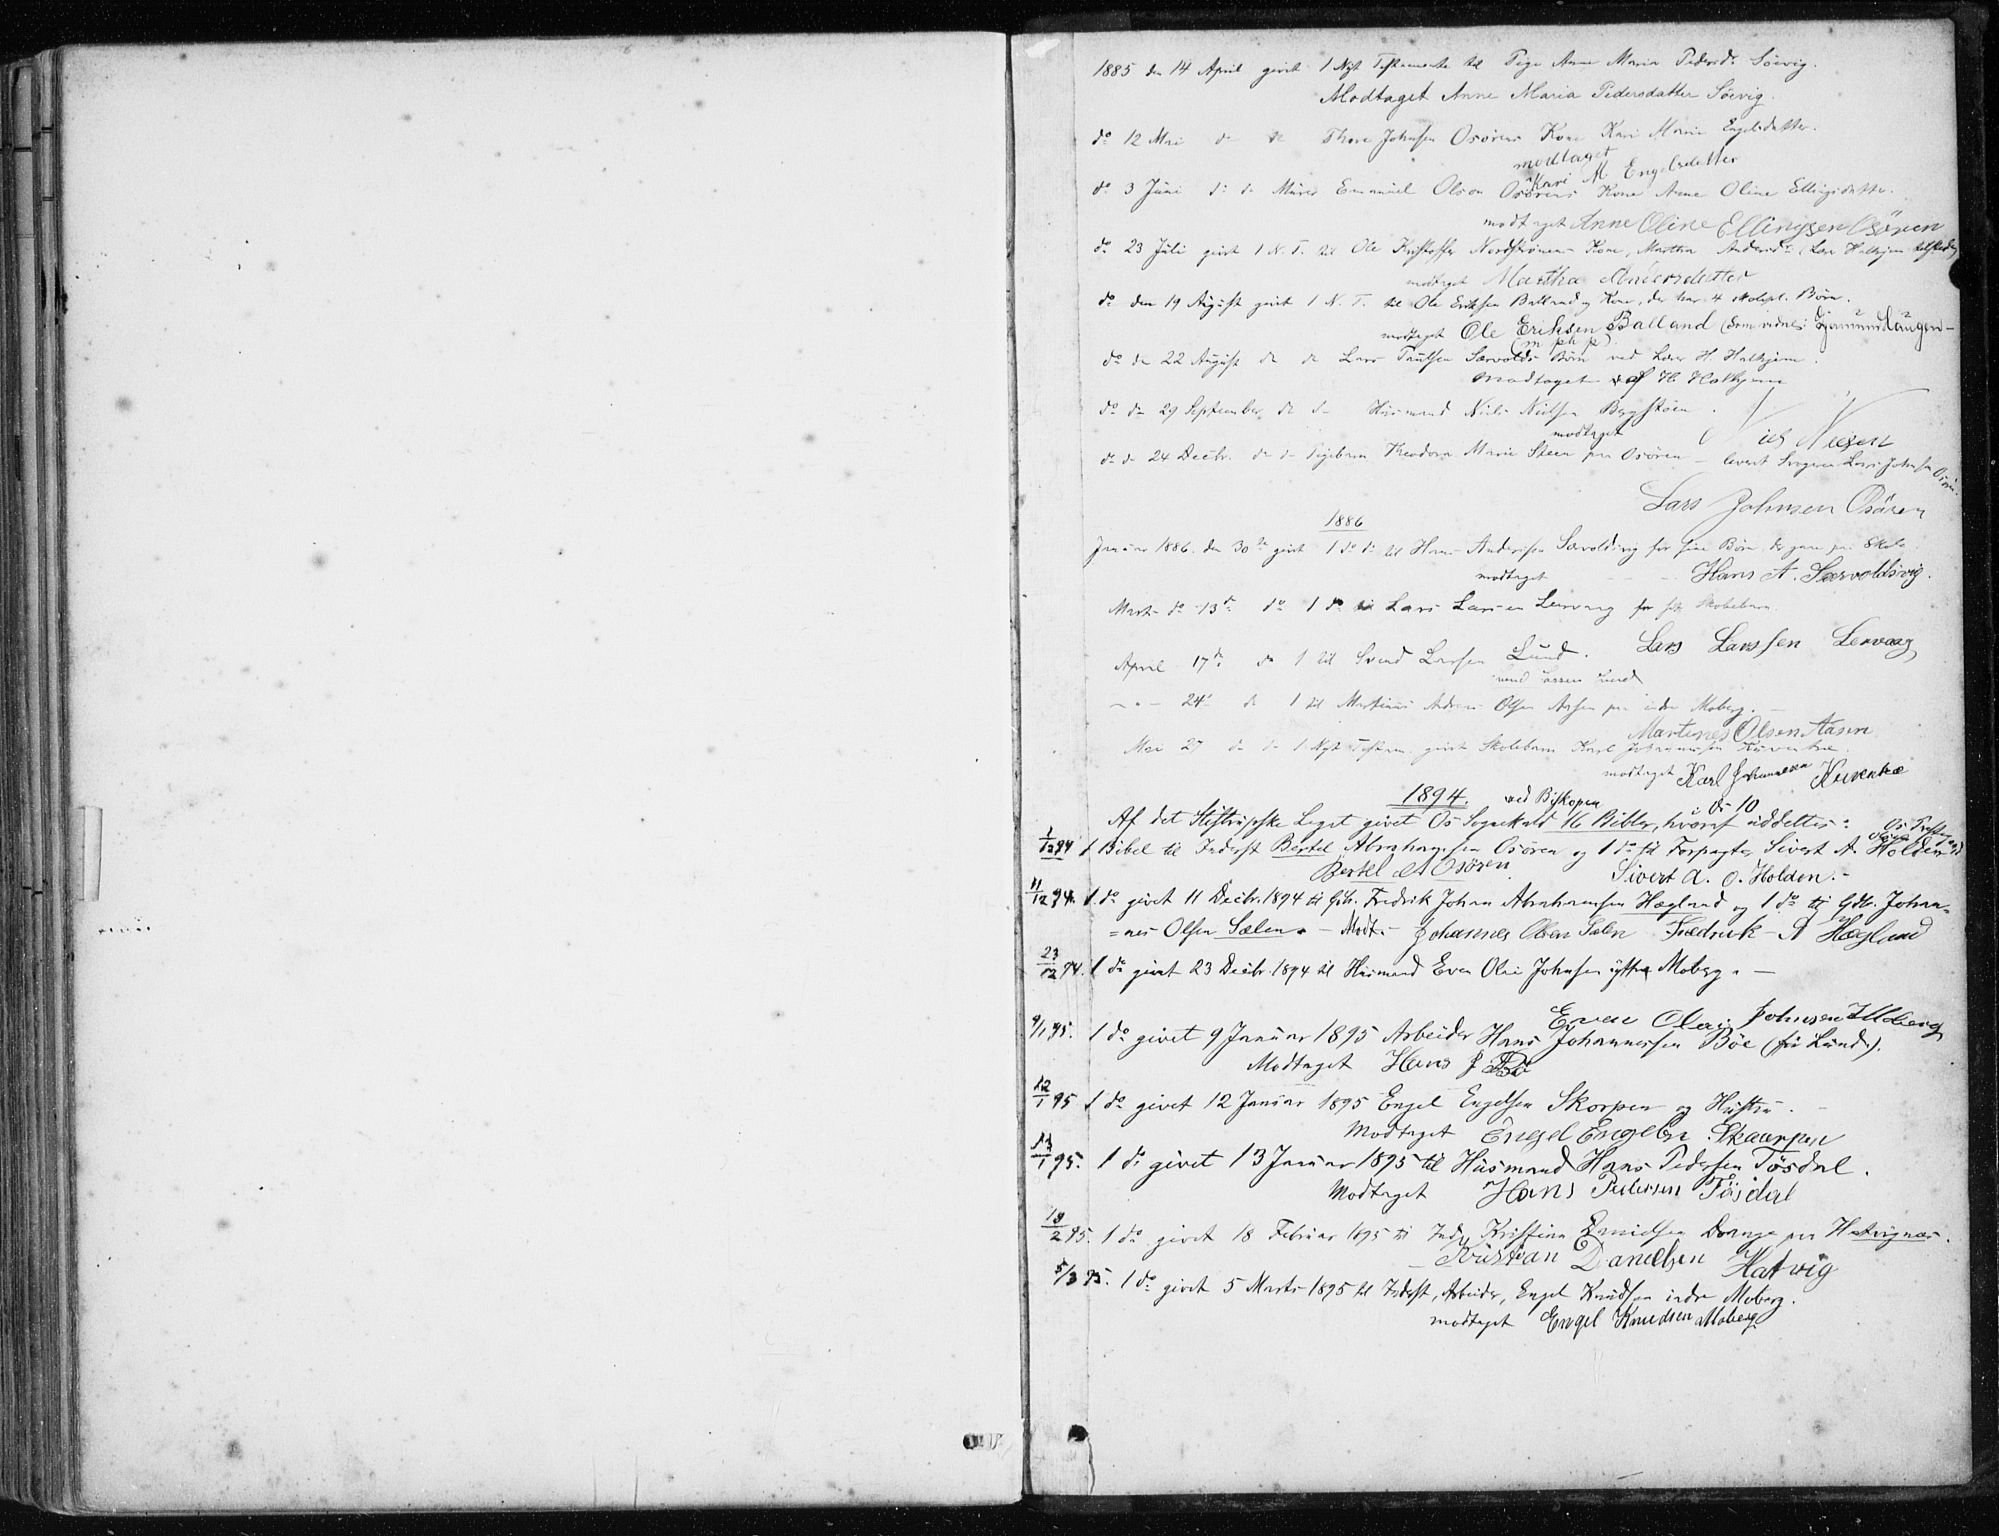 1885 den 14 April givet 1 Nyt Testamente til Pige Anne Maria Pedersdr Söevig.
Modtaget Anne Maria Pedersdatter Söevig.
do 12 Mai do til Thore Johnsen Osörens Kone Kari Marie Engelsdatter.
modtaget
Kari M Engelsdatter
do 3 Juni do do Murer Emanuel Olson Osörens Kone Anne Oline Ellingsdatter.
modtaget Anne Oline Ellingsen Osören
do 23 Juli givet 1 N. T. til Ole Kristoffer Nordströmens Kone, Martha Andersdr
modtaget Martha Andersdatter
do den 19 August givet 1 N. T. til Ole Eriksen Balland og Kone, der har 4 skolepl. Börn.
modtaget Ole Eriksen Balland (Som vidne:
(m p h p).
do den 22 August do do Lars Paulsen Særvolds Börn ved Lærer H. Halhjem.
modtaget af H. Halhjem
do den 29 September do do Husmand Niels Nielsen Bergstöen.
modtaget Niels Nielsen
do do 24 Decbr. do do Pigebarn Theodora Marie Steen paa Osören – levert Svogeren Lars Johnsen Osören.
Lars Johnsen Osören
1886
Januar 1886. den 30te givet 1 do do til Hans Andersen Særvoldsvig for sine Börn, der gaar paa Skole.
modtaget Hans A. Særvoldsvig.
Marts do 13de do 1 do til Lars Larsen Lervaag for sit Skolebarn.
Lars Larssen Lervaag
April 17de do 1 til Svend Larsen Lund.
Svend Larssen Lund
– " – 24de do 1 til Martinus Andreas Olsen Aasen paa indre Moberg. –
Martines Olsen Aasen
Mai 27 do do 1 Nyt Testam. givet Skolebarn Karl Johannesen Kuventræ.
modtaget Karl Johannesen Kuventræ
1894. ved Biskopen
Af det Stiftrupske Legat givet Os Sognekald 16 Bibler, hvoraf i Os 10 uddeltes:
1/12 94 1 Bibel til Inderst Bertel Abrahamsen Osören og 1 do til Forpagter Sivert A. Holden
Bertel A Osören Sivert A. O. Holden. –
11/12 94. 1 do givet 11 Decbr. 1894 til Gbr. Fredrik Johan Abrahamsen Hægland og 1 do til Gdb. Johan=
=nes Olsen Sælen. – Modt. – Johannes Olsen Sælen Fredrick A Hægland
23/12 94. 1 do givet 23 Decbr. 1894 til Husmand Even Olai Johnsen yttre Moberg. –
Even Olai Johnsen Y Moberg
9/1 95. 1 do givet 9 Januar 1895 Arbeider Hans Johannessen Böe (fra Lunde).
Modtaget Hans J Bö
12/1 95 1 do givet 12 Januar 1895 Engel Engelsen Skorpen og Hustru. –
Modtaget Engel Engelsen Skaarpen
13/1 95. 1 do givet 13 Januar 1895 til Husmand Hans Pedersen Tösdal.
Modtaget Hans Pedersen Tösdal
18/2 95. 1 do givet 18 Februar 1895 til Inds. Kristian Danielsen Drange paa Hatvignæs.
– Kristian Danielsen Hatvig
5/3 95. 1 do givet 5 Marts 1895 til Inderst, Arbeider, Engel Knudsen indre Moberg.
modtaget Engel Knudsen Moberg